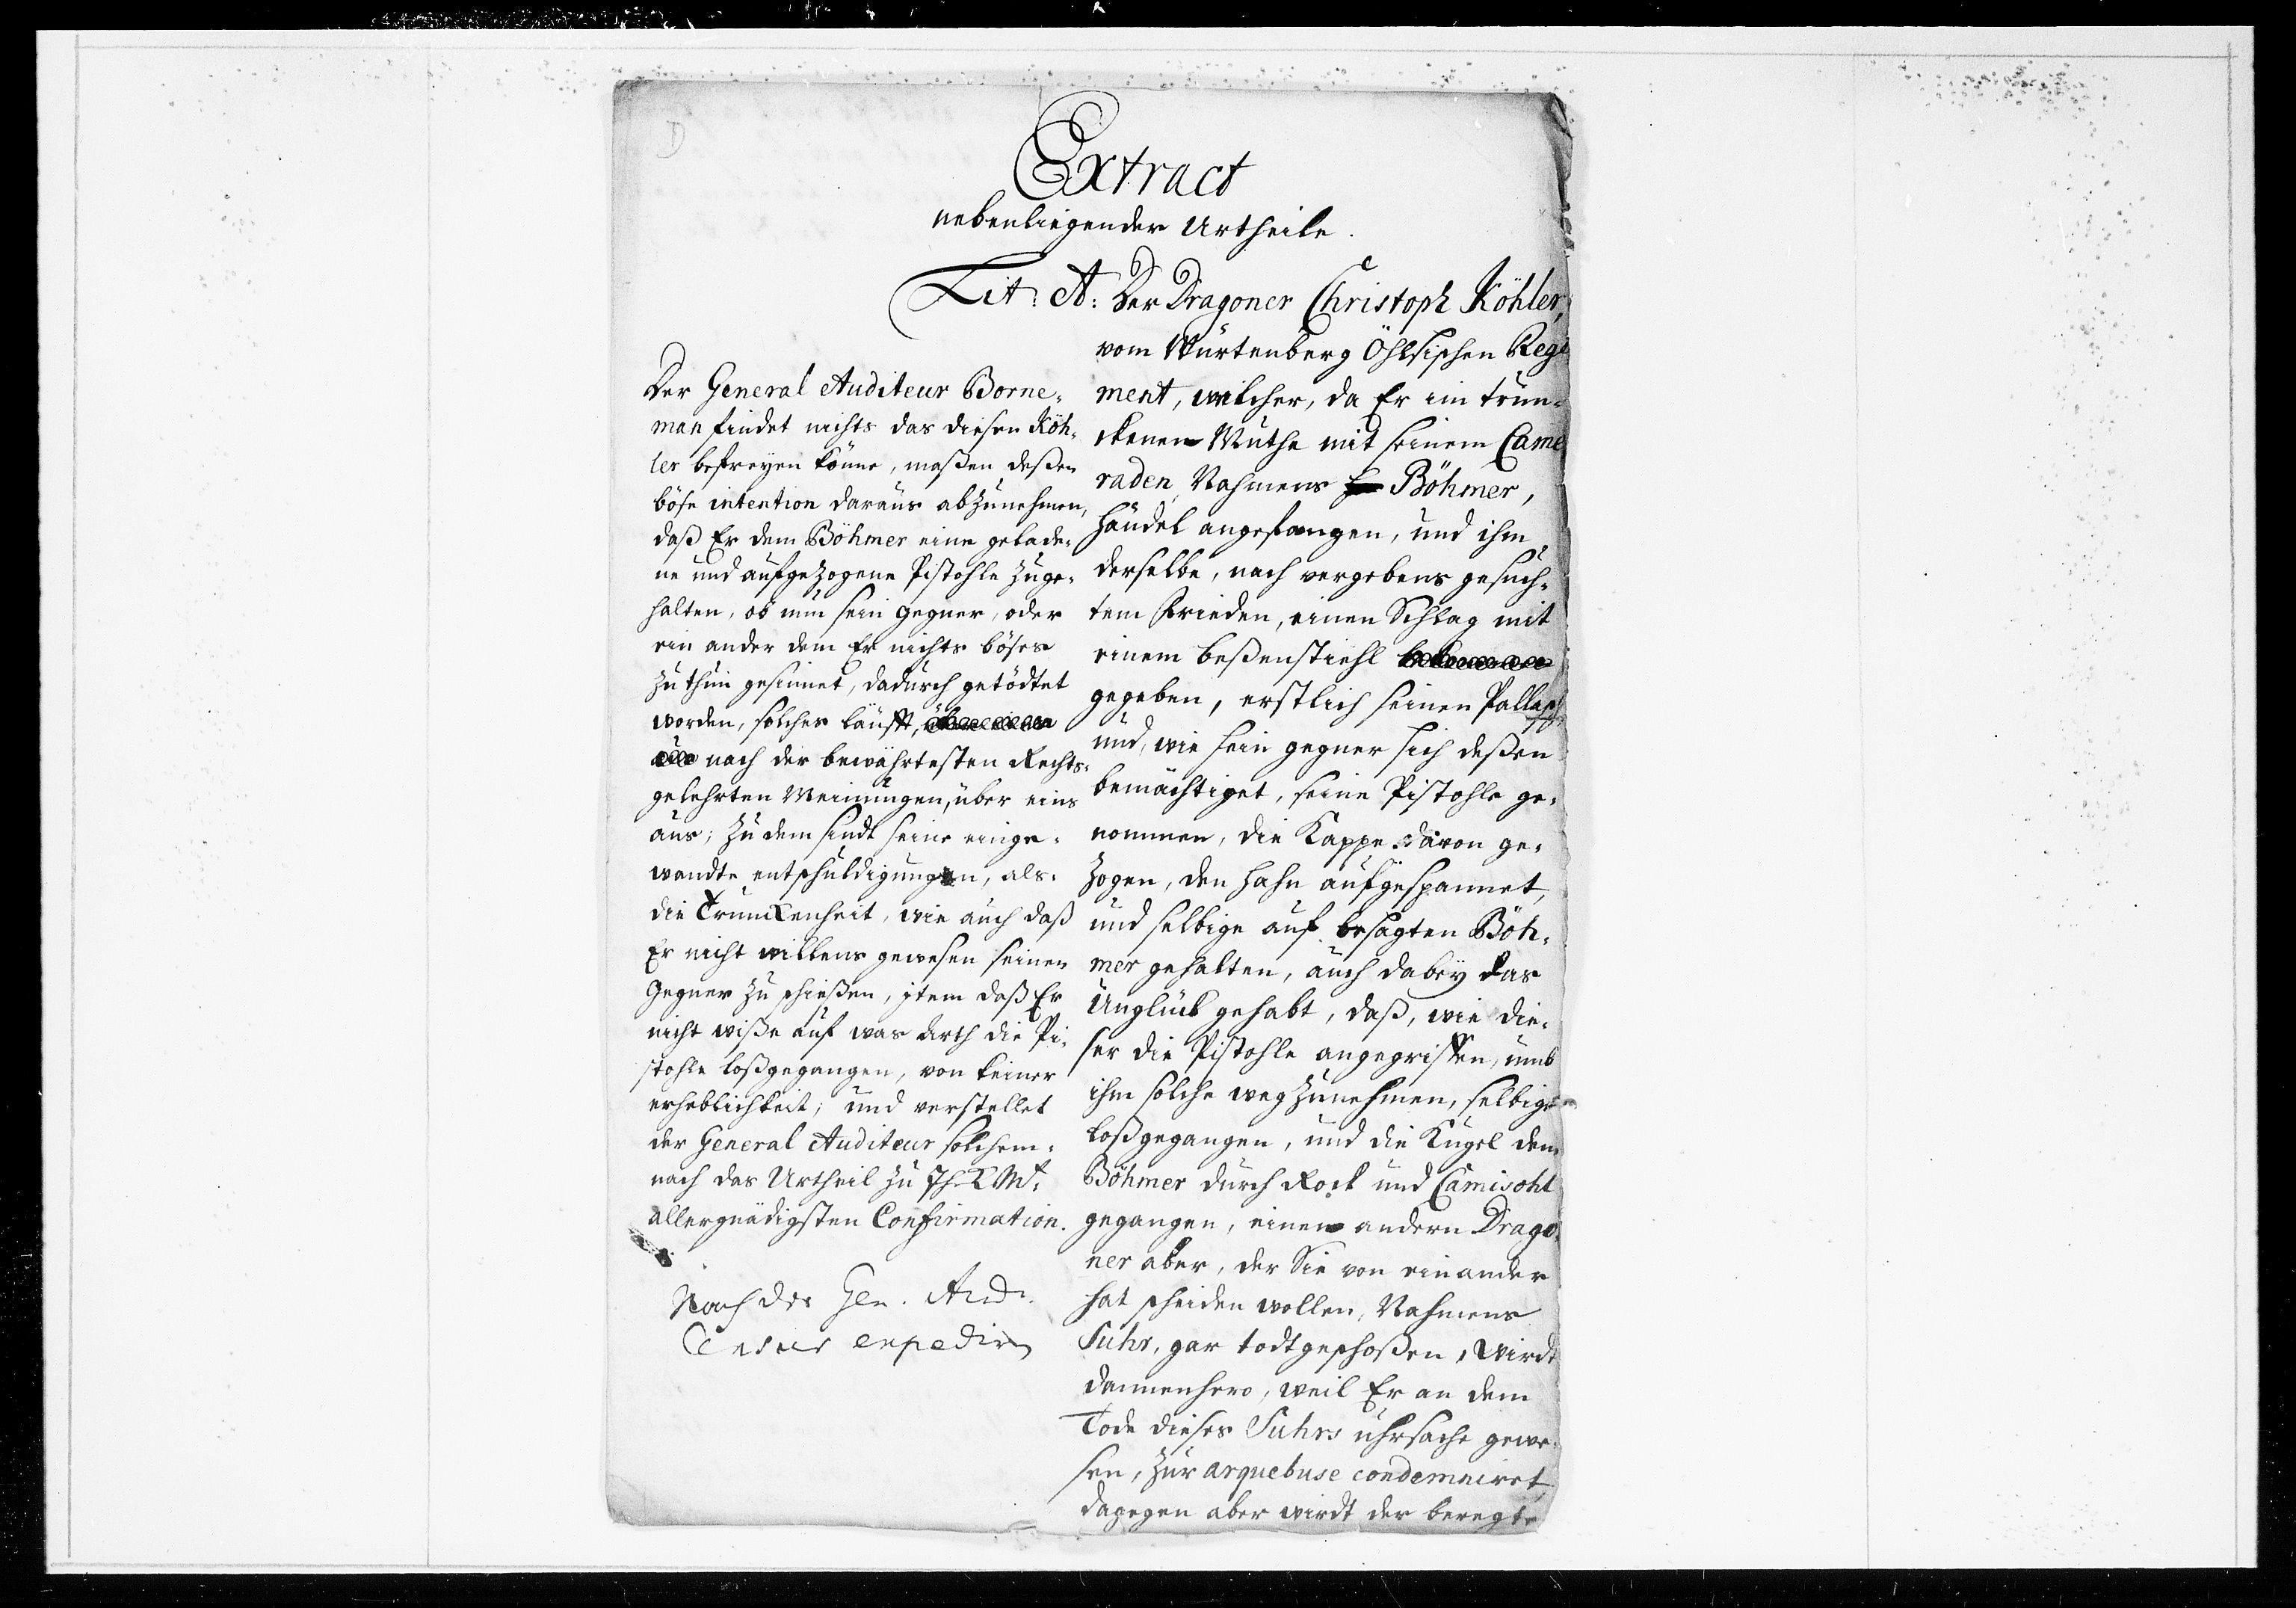 Extract
nebenliegender Urtheile.
Lit: A: Der Dragoner Christoph Köhler,
vom Würtenberg Öhlsischen Regi
ment, welcher, da Er im trun-
ckenen Muthe mit seinem Came
raden, Nahmens Böhmer,
händel angefangen, und ihm
derselbe, nach vergebens gesuch-
tem Frieden, einen Schlag mit
einem beßenstiehl
gegeben, erstlich seinen Pallasch
und, wie sein gegner sich deßen
bemächtiget, seine Pistohle ge-
nommen, die Kappe davon ge-
zogen, den hahn aufgespannet,
und selbige auf besagten Böh-
mer gehalten, auch dabey das
Unglück gehabt, daß, wie die-
ser die Pistohle angegriffen, umb
ihm solche wegzunehmen, selbige
loßgegangen, und die Kugel dem
Böhmer durch Rock und Camisohl
gegangen, einen andern Drago-
ner aber, der Sie von einander
hat scheiden wollen, Nahmens
Suhr, gar todtgeschoßen, wirdt
dannenhero, weil Er an dem
Tode dieses Suhrs uhrsache gewe-
sen, zur arquebuse condemniret,
dagegen aber wirdt der beregte
Der General Auditeur Borne-
man findet nichts das diesen Köh-
ler befreyen könne, maßen deßen
böse intention daraus abzunehmen,
daß Er dem Böhmer eine gelade-
ne und aufgezogene Pistohle zuge-
halten, ob nun sein gegner, oder
ein ander dem Er nichts böses
zu thun gesinnet, dadurch getödtet
worden, solches läufft,
nach der bewährtesten Rechts-
gelehrten Meinungen, über eins
aus; zu dem sindt seine einge-
wandte entschuldigungen, als
die Trunckenheit, wie auch daß
Er nicht willens gewesen seinen
Gegner zu schießen, item daß Er
nicht wiße auf was Arth die Pi-
stohle loßgegangen, von keiner
erheblichkeit; und verstellet
der General Auditeur solchem-
nach das Urtheil zu Ih. K. Mt.
allergnädigsten Confirmation.
Nach des Gen. Aud.
Censur expedirn